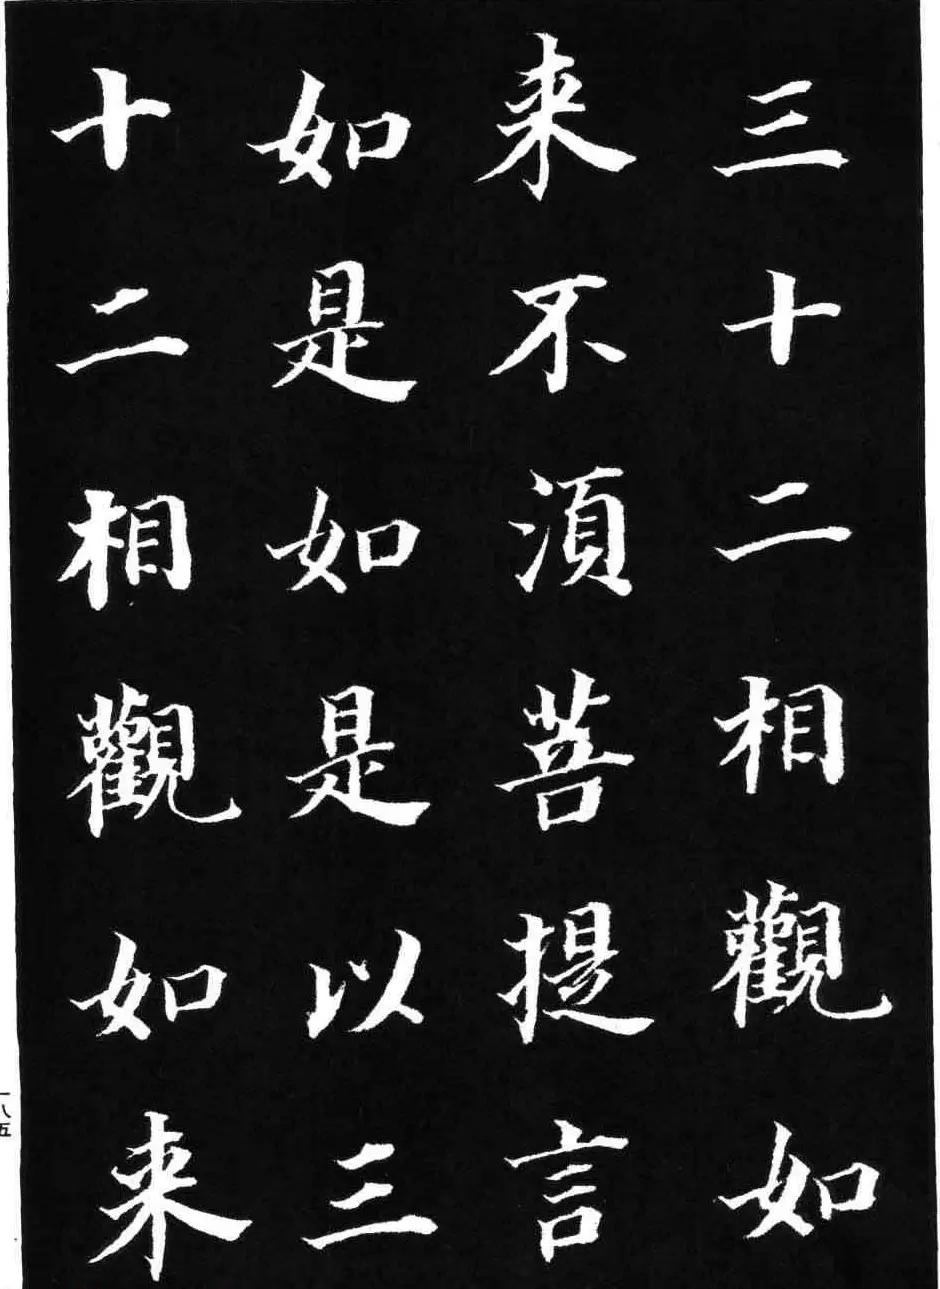 三十二相觀如
来不湏菩提言
如是如是以三
十二相觀如来
一八五